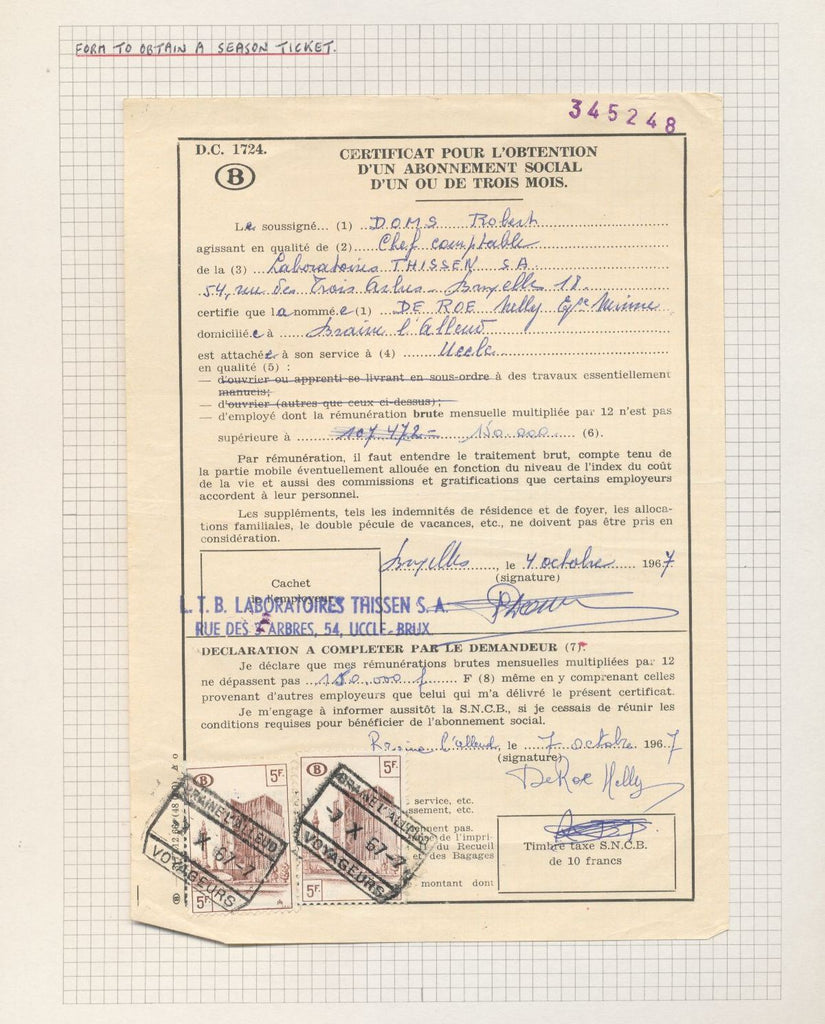 FORM TO OBTAIN A SEASON TICKET.
345248
D.C. 1724.
B
CERTIFICAT POUR L'OBTENTION
D'UN ABONNEMENT SOCIAL
D'UN OU DE TROIS MOIS.
Le soussigné... (1) DOMS Robert
agissant en qualité de (2) Chef comptable
de la (3) Laboratoires THISSEN SA
54, rue des Trois Arbres - Bruxelles 18.
certifie que la nommée (1) DE ROE Nelly Epse Minne
domiciliée à Braine l'Alleud
est attachée à son service à (4) Uccle
en qualité (5) :
— d'ouvrier ou apprenti se livrant en sous-ordre à des travaux essentiellement
manuels;
— d'ouvrier (autres que ceux ci-dessus);
— d'employé dont la rémunération brute mensuelle multipliée par 12 n'est pas
supérieure à 107 472= 180.000 (6).
Par rémunération, il faut entendre le traitement brut, compte tenu de
la partie mobile éventuellement allouée en fonction du niveau de l'index du coût
de la vie et aussi des commissions et gratifications que certains employeurs
accordent à leur personnel.
Les suppléments, tels les indemnités de résidence et de foyer, les alloca-
tions familiales, le double pécule de vacances, etc., ne doivent pas être pris en
considération.
Bruxelles, le 4 octobre 1967
(signature)
Cachet
de l'employeur
L. T. B. LABORATOIRES THISSEN S. A.
RUE DES 3 ARBRES, 54, UCCLE-BRUX.
DECLARATION A COMPLETER PAR LE DEMANDEUR (7).
Je déclare que mes rémunérations brutes mensuelles multipliées par 12
ne dépassent pas 180.000 f F (8) même en y comprenant celles
provenant d'autres employeurs que celui qui m'a délivré le présent certificat.
Je m'engage à informer aussitôt la S.N.C.B., si je cessais de réunir les
conditions requises pour bénéficier de l'abonnement social.
Braine l'Alleud, le 7 octobre 1967
(signature)
DeRoe Nelly
B 5F.
B 5F.
BRAINE L'ALLEUD
-7 X 67-7
VOYAGEURS
5F.
BRAINE L'ALLEUD
-7 X 67-7
VOYAGEURS
5F.
service, etc.
ssement, etc.
nent pas.
de l'impri-
du Recueil
et des Bagages
montant dont
Timbre taxe S.N.C.B.
de 10 francs